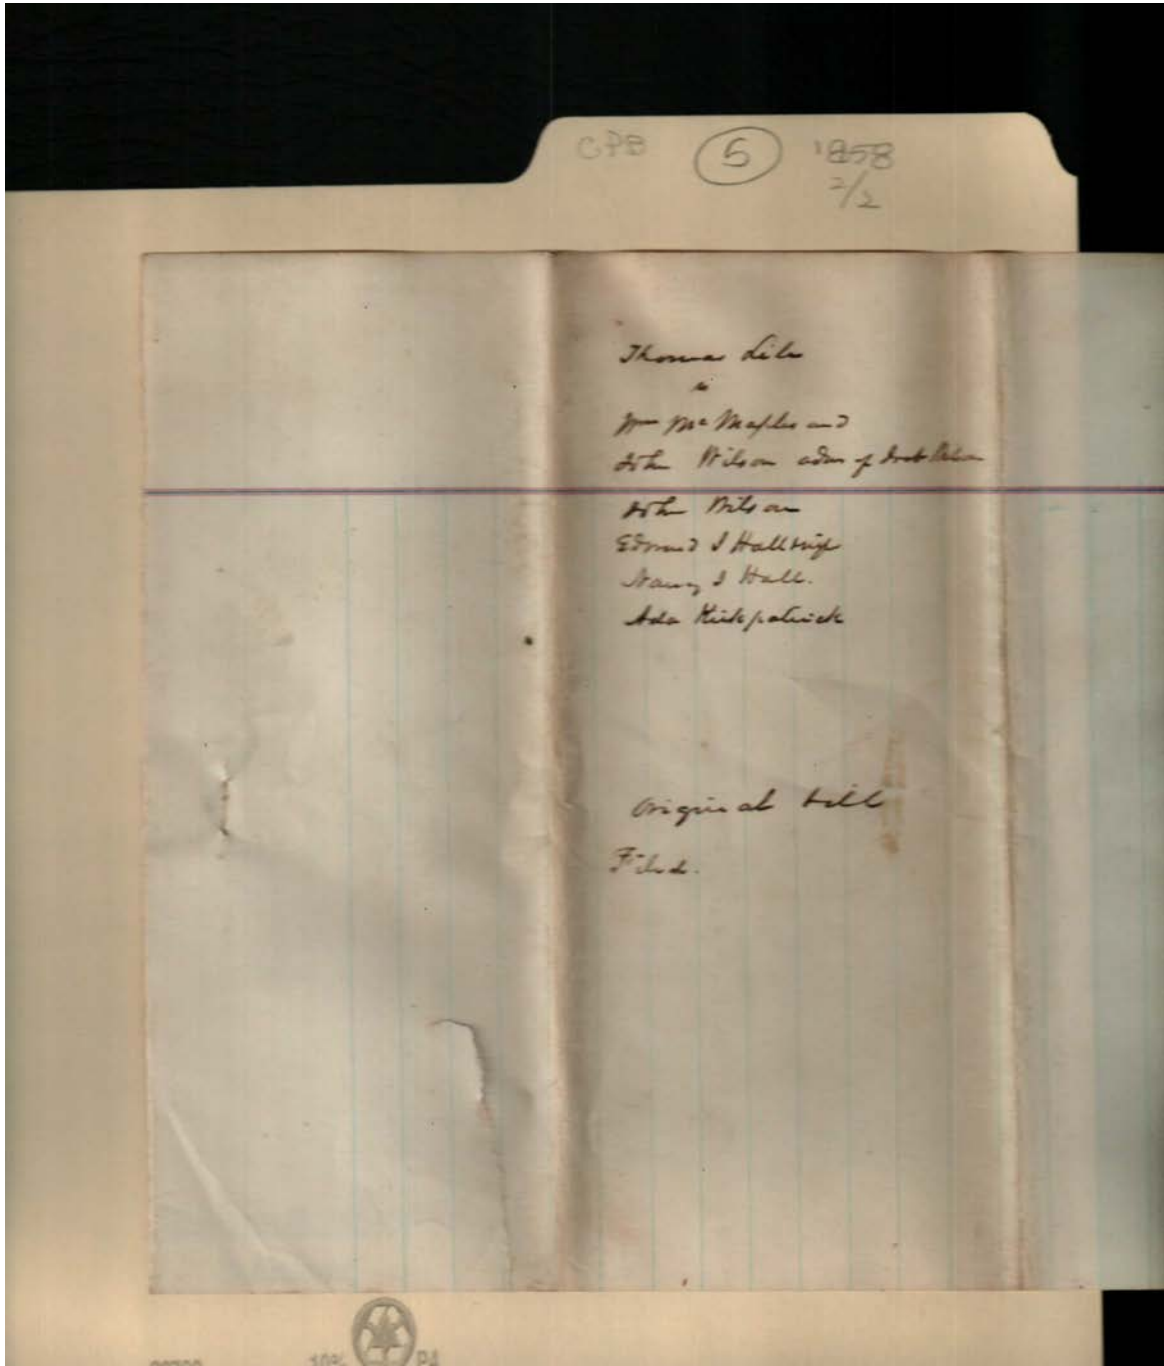 CPB 5 1858
2/2
Thomas Lile
vs
Wm Mc Maples and
John Wilson adm of
John Wilson
Edmund J Hall
Nancy J Hall.
Ada Kirkpatrick
Original bill
Filed.
10%